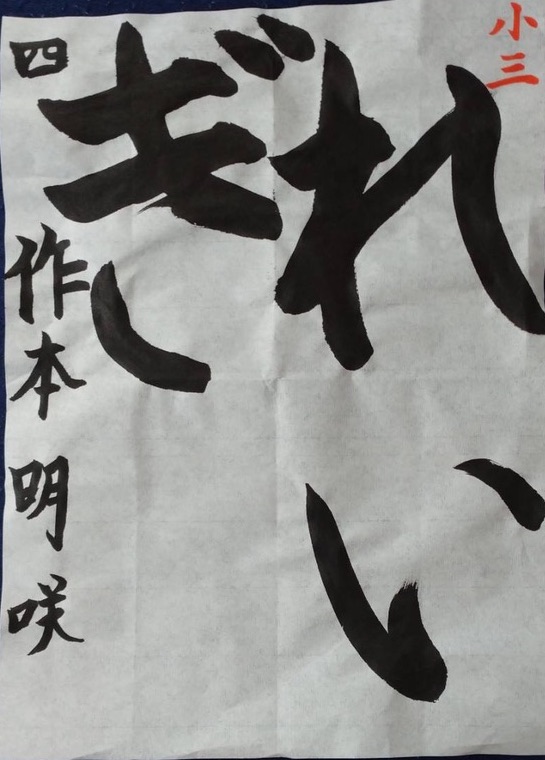 小三
れい
ぎ
四 作本明咲